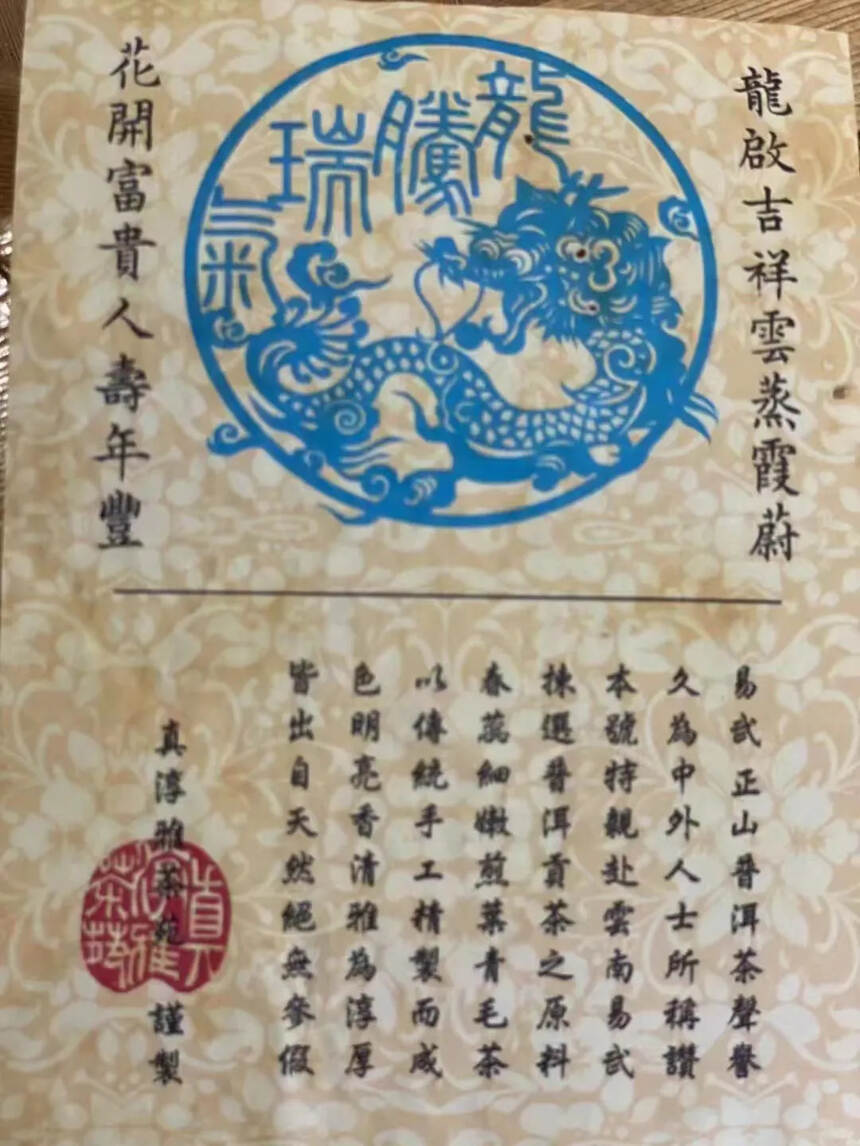 龍啟吉祥雲蒸霞蔚
龍騰瑞氣
花開富貴人壽年豐
易武正山普洱茶聲譽
久為中外人士所稱讚
本號特親赴雲南易武
揀選普洱貢茶之原料
春蕊細嫩煎葉青毛茶
以傳統手工精製而成
色明亮香清雅為淳厚
皆出自天然絕無參假
真淳雅茶苑 謹製